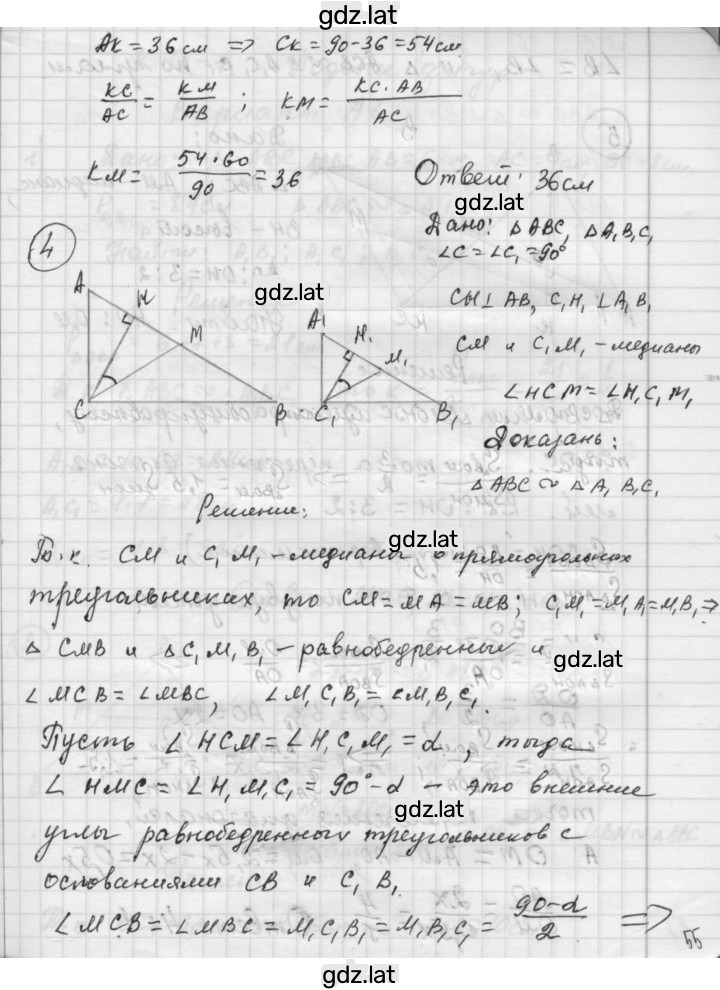 gdz.lat
AK = 36 см => CK = 90-36 = 54 см
KC/AC = KM/AB ; KM = KC·AB/AC
KM = 54·60/90 = 36
Ответ: 36 см
gdz.lat
4
Дано: △ABC, △A₁B₁C₁
∠C = ∠C₁ = 90°
gdz.lat
CH⊥AB, C₁H₁⊥A₁B₁
CM и C₁M₁ – медианы
∠HCM = ∠H₁C₁M₁
Доказать:
△ABC ∾ △A₁B₁C₁
A H M C B
A₁ H₁ M₁ C₁ B₁
Решение:
gdz.lat
Т.к. CM и C₁M₁ – медианы в прямоугольных
треугольниках, то CM = MA = MB; C₁M₁ = M₁A = M₁B₁ =>
△CMB и △C₁M₁B₁ – равнобедренные и
gdz.lat
∠MCB = ∠MBC, ∠M₁C₁B₁ = ∠M₁B₁C₁.
Пусть ∠HCM = ∠H₁C₁M₁ = α, тогда
∠HMC = ∠H₁M₁C₁ = 90° - α – это внешние
gdz.lat
углы равнобедренных треугольников с
основаниями CB и C₁B₁.
∠MCB = ∠MBC = M₁C₁B₁ = M₁B₁C₁ = 90-α/2 =>
55
gdz.lat